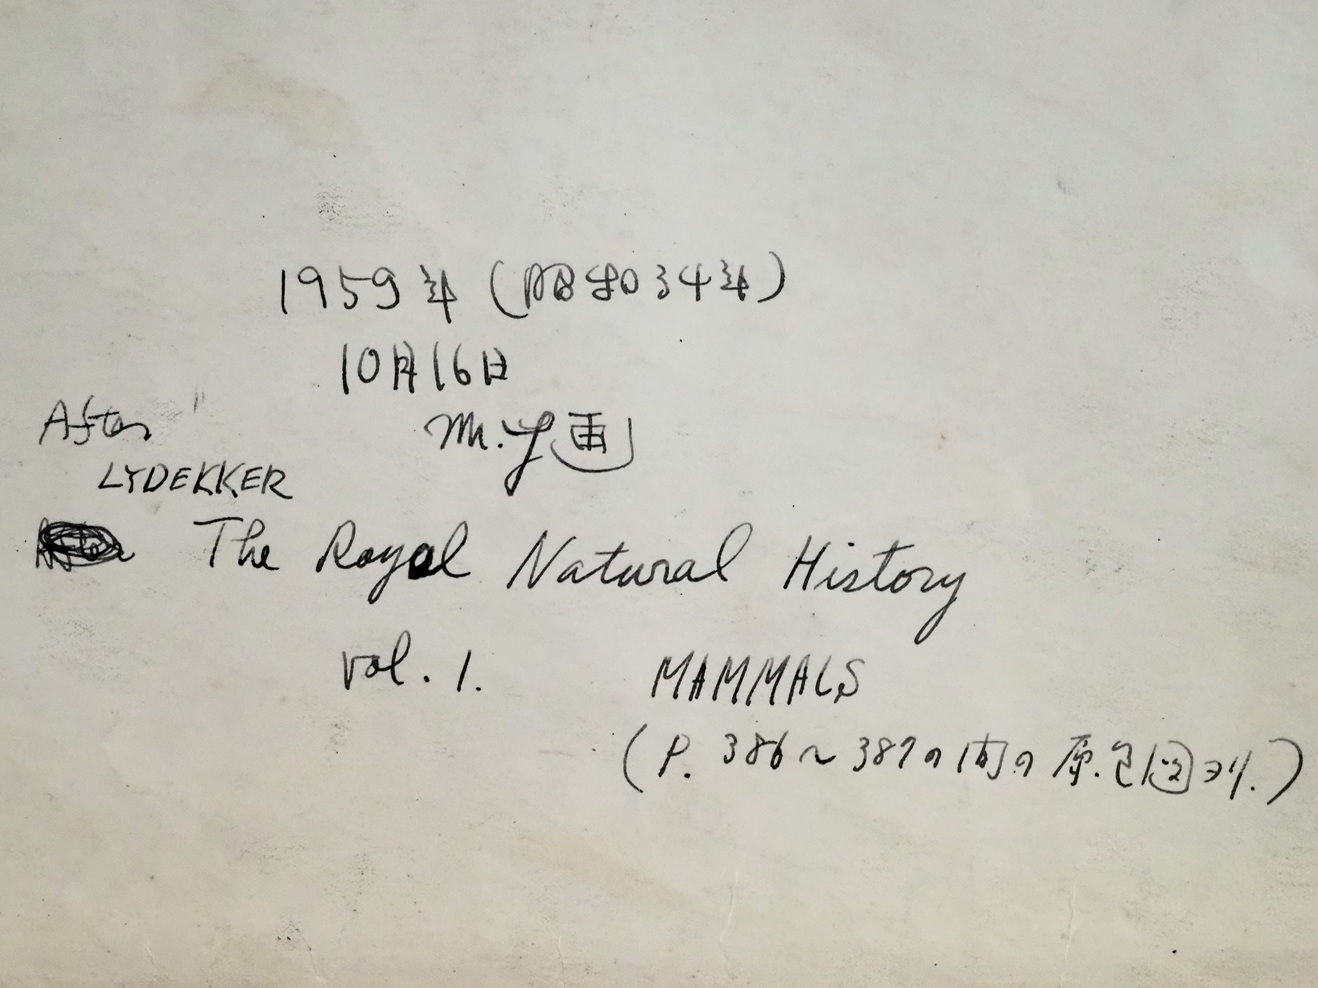 1959年（昭和34年）
10月16日
M.Y画
After
LYDEKKER
The Royal Natural History
vol. 1. MAMMALS
(P. 386～387の間の原色図ヨリ.)